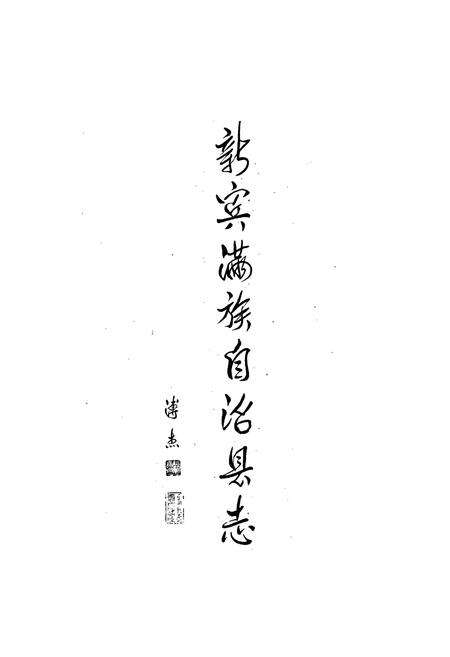 新宾满族自治县志
溥杰